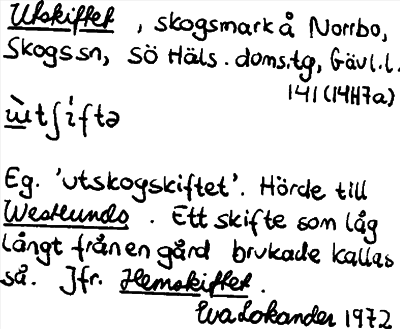 Utskiftet, skogsmark å Norrbo,
Skogs sn, sö Häls. doms.tg, Gävl.l.
141 (14H7a)
ẁtʃìftə
Eg. 'utskogskiftet'. Hörde till
Westlunds. Ett skifte som låg
långt från en gård brukade kallas
så. Jfr. Hemskiftet.
Eva Lokander 1972